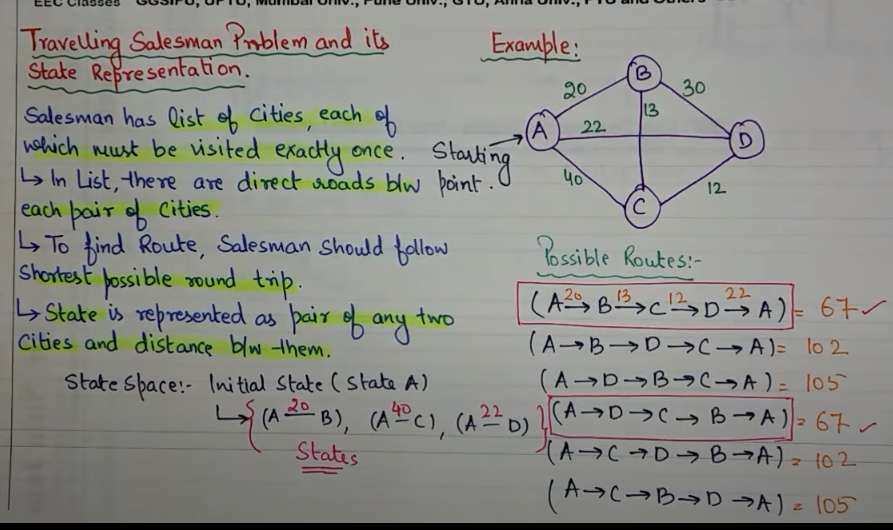 EEC Classes GGSIPU, UPTU, Mumbai Univ., Pune Univ., GTU, Anna Univ., PTU and Others
Travelling Salesman Problem and its
State Representation.
Salesman has list of cities, each of
which must be visited exactly once.
↳ In List, there are direct roads b/w
each pair of cities.
↳ To find Route, Salesman should follow
Shortest possible round trip.
↳ State is represented as pair of any two
Cities and distance b/w them.
State Space:- Initial State (State A)
↳ { (A —20— B), (A —40— C), (A —22— D) }
States
Example:
Starting
point.
A
B
C
D
20
30
13
22
40
12
Possible Routes:-
(A 20→ B 13→ C 12→ D 22→ A) = 67 ✓
(A → B → D → C → A) = 102
(A → D → B → C → A) = 105
(A → D → C → B → A) = 67 ✓
(A → C → D → B → A) = 102
(A → C → B → D → A) = 105